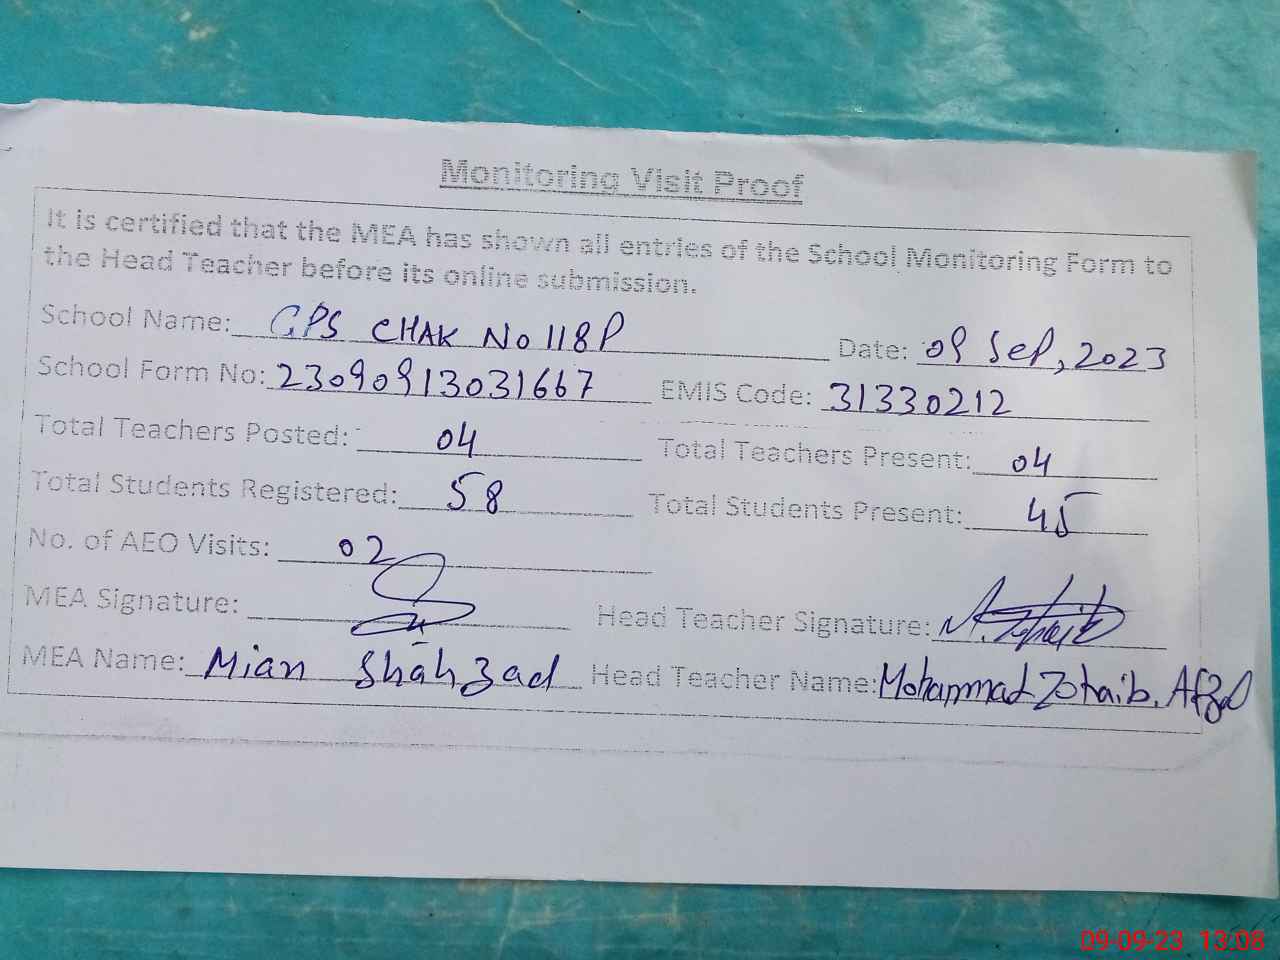 Monitoring Visit Proof
It is certified that the MEA has shown all entries of the School Monitoring Form to
the Head Teacher before its online submission.
School Name: GPS CHAK No 118P Date: 09 Sep, 2023
School Form No: 23090913031667 EMIS Code: 31330212
Total Teachers Posted: 04 Total Teachers Present: 04
Total Students Registered: 58 Total Students Present: 45
No. of AEO Visits: 02
MEA Signature: Head Teacher Signature: M. Zohaib
MEA Name: Mian Shahzad Head Teacher Name: Mohammad Zohaib. Afzal
09-09-23 13:08